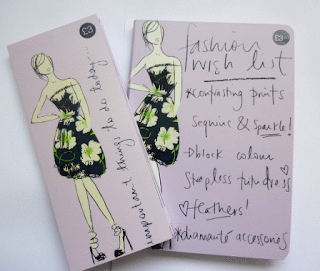 £3
important things to do today...
£3
fashion
wish list
*contrasting prints
sequins & sparkle!
*block colour
strapless tutu dress
feathers!
*diamanté accessories